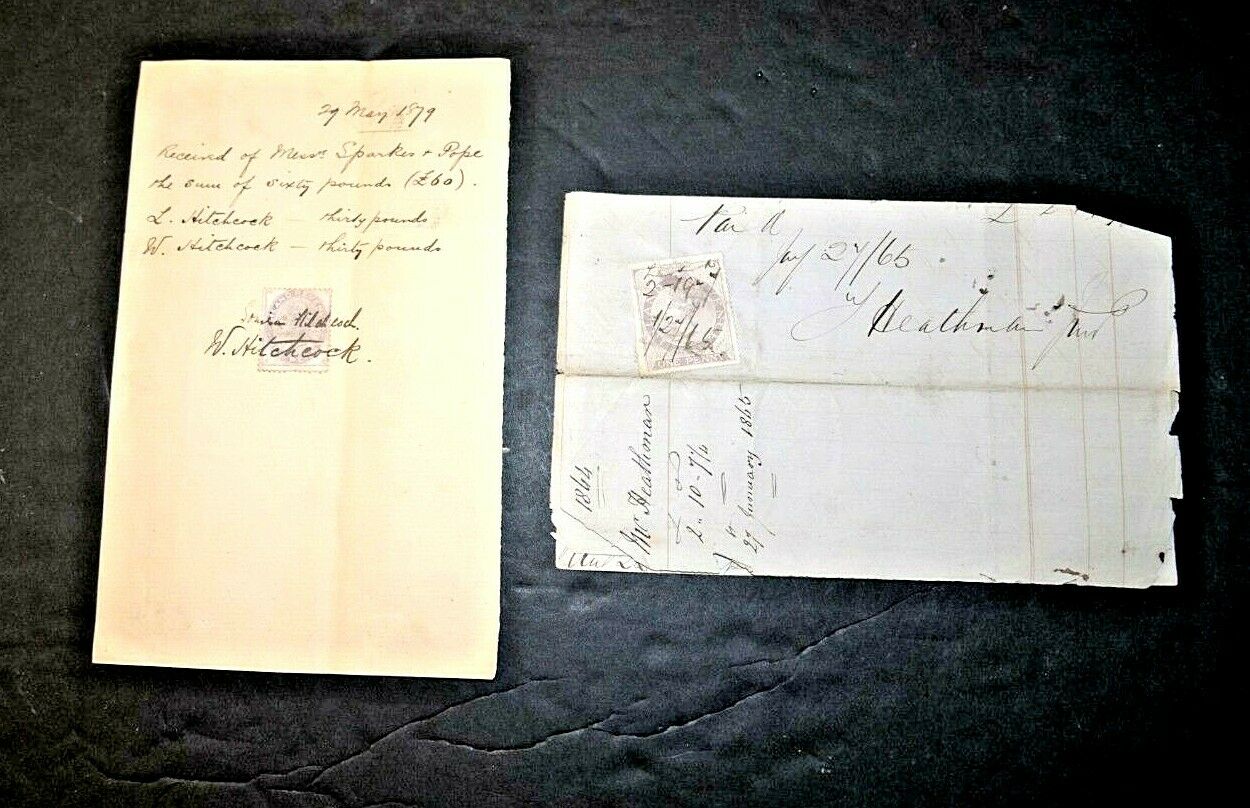 29 May 1879
Received of Messrs Sparkes + Pope
the sum of sixty pounds (£60).
L. Hitchcock — thirty pounds
W. Hitchcock — thirty pounds
Hitchcock
W. Hitchcock.
Paid
27/65
Heathman
27/65
1864
Mr Heathman
2-10-7½
27 January 1865